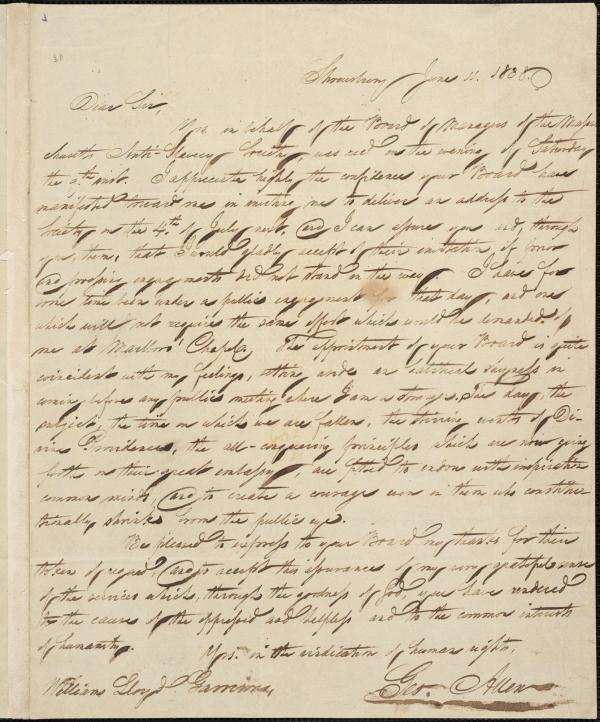 Shrewsbury June 11. 1838.
Dear Sir,
Yrs. in behalf of the Board of Managers of the Massa-
chusetts Anti-Slavery Society was recd on the evening of Saturday
the 9th inst. I appreciate highly the confidence your Board have
manifested toward me in inviting me to deliver an address to the
Society on the 4th of July next, and I can assure you and, through
you, them, that I would gladly accept of their invitation, if prior
and pressing engagements did not stand in the way. I have for
some time been under a public engagement for that day, and one
which will not require the same effort which would be demanded of
me at Marlboro' Chapel. The appointment of your Board is quite
coincident with my feelings, setting aside an habitual shyness in
coming before any public meeting where I am a stranger. The day, the
subject, the time on which we are fallen, the stirring events of Di-
vine Providence, the all-conquering principles which are now going
forth on their great embassy are fitted to endow with inspiration
common minds, and to create a courage even in them who constitu-
tionally shrink from the public eye.
Be pleased to express to your Board my thanks for their
token of regard, and to accept this assurance of my very grateful sense
of the services which, through the goodness of God, you have rendered
to the cause of the oppressed and helpless and to the common interests
of humanity.
Yrs. in the vindication of human rights,
Geo. Allen
William Lloyd Garrison,